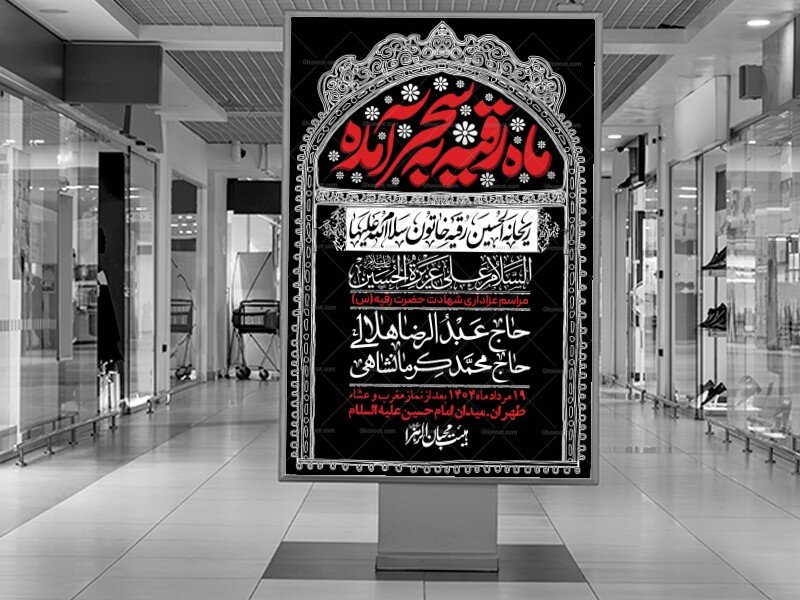 ماه رقیه به سحر آمده
ریحانه الحسین رقیه خاتون سلام الله علیها
السلام علی عزیزة الحسین
مراسم عزاداری شهادت حضرت رقیه(س)
حاج عبدالرضا هلالی
حاج محمد کرمانشاهی
۱۹ مرداد ماه ۱۴۰۴ بعد از نماز مغرب و عشاء
طهران، میدان امام حسین علیه السلام
هیئت محبان الزهرا